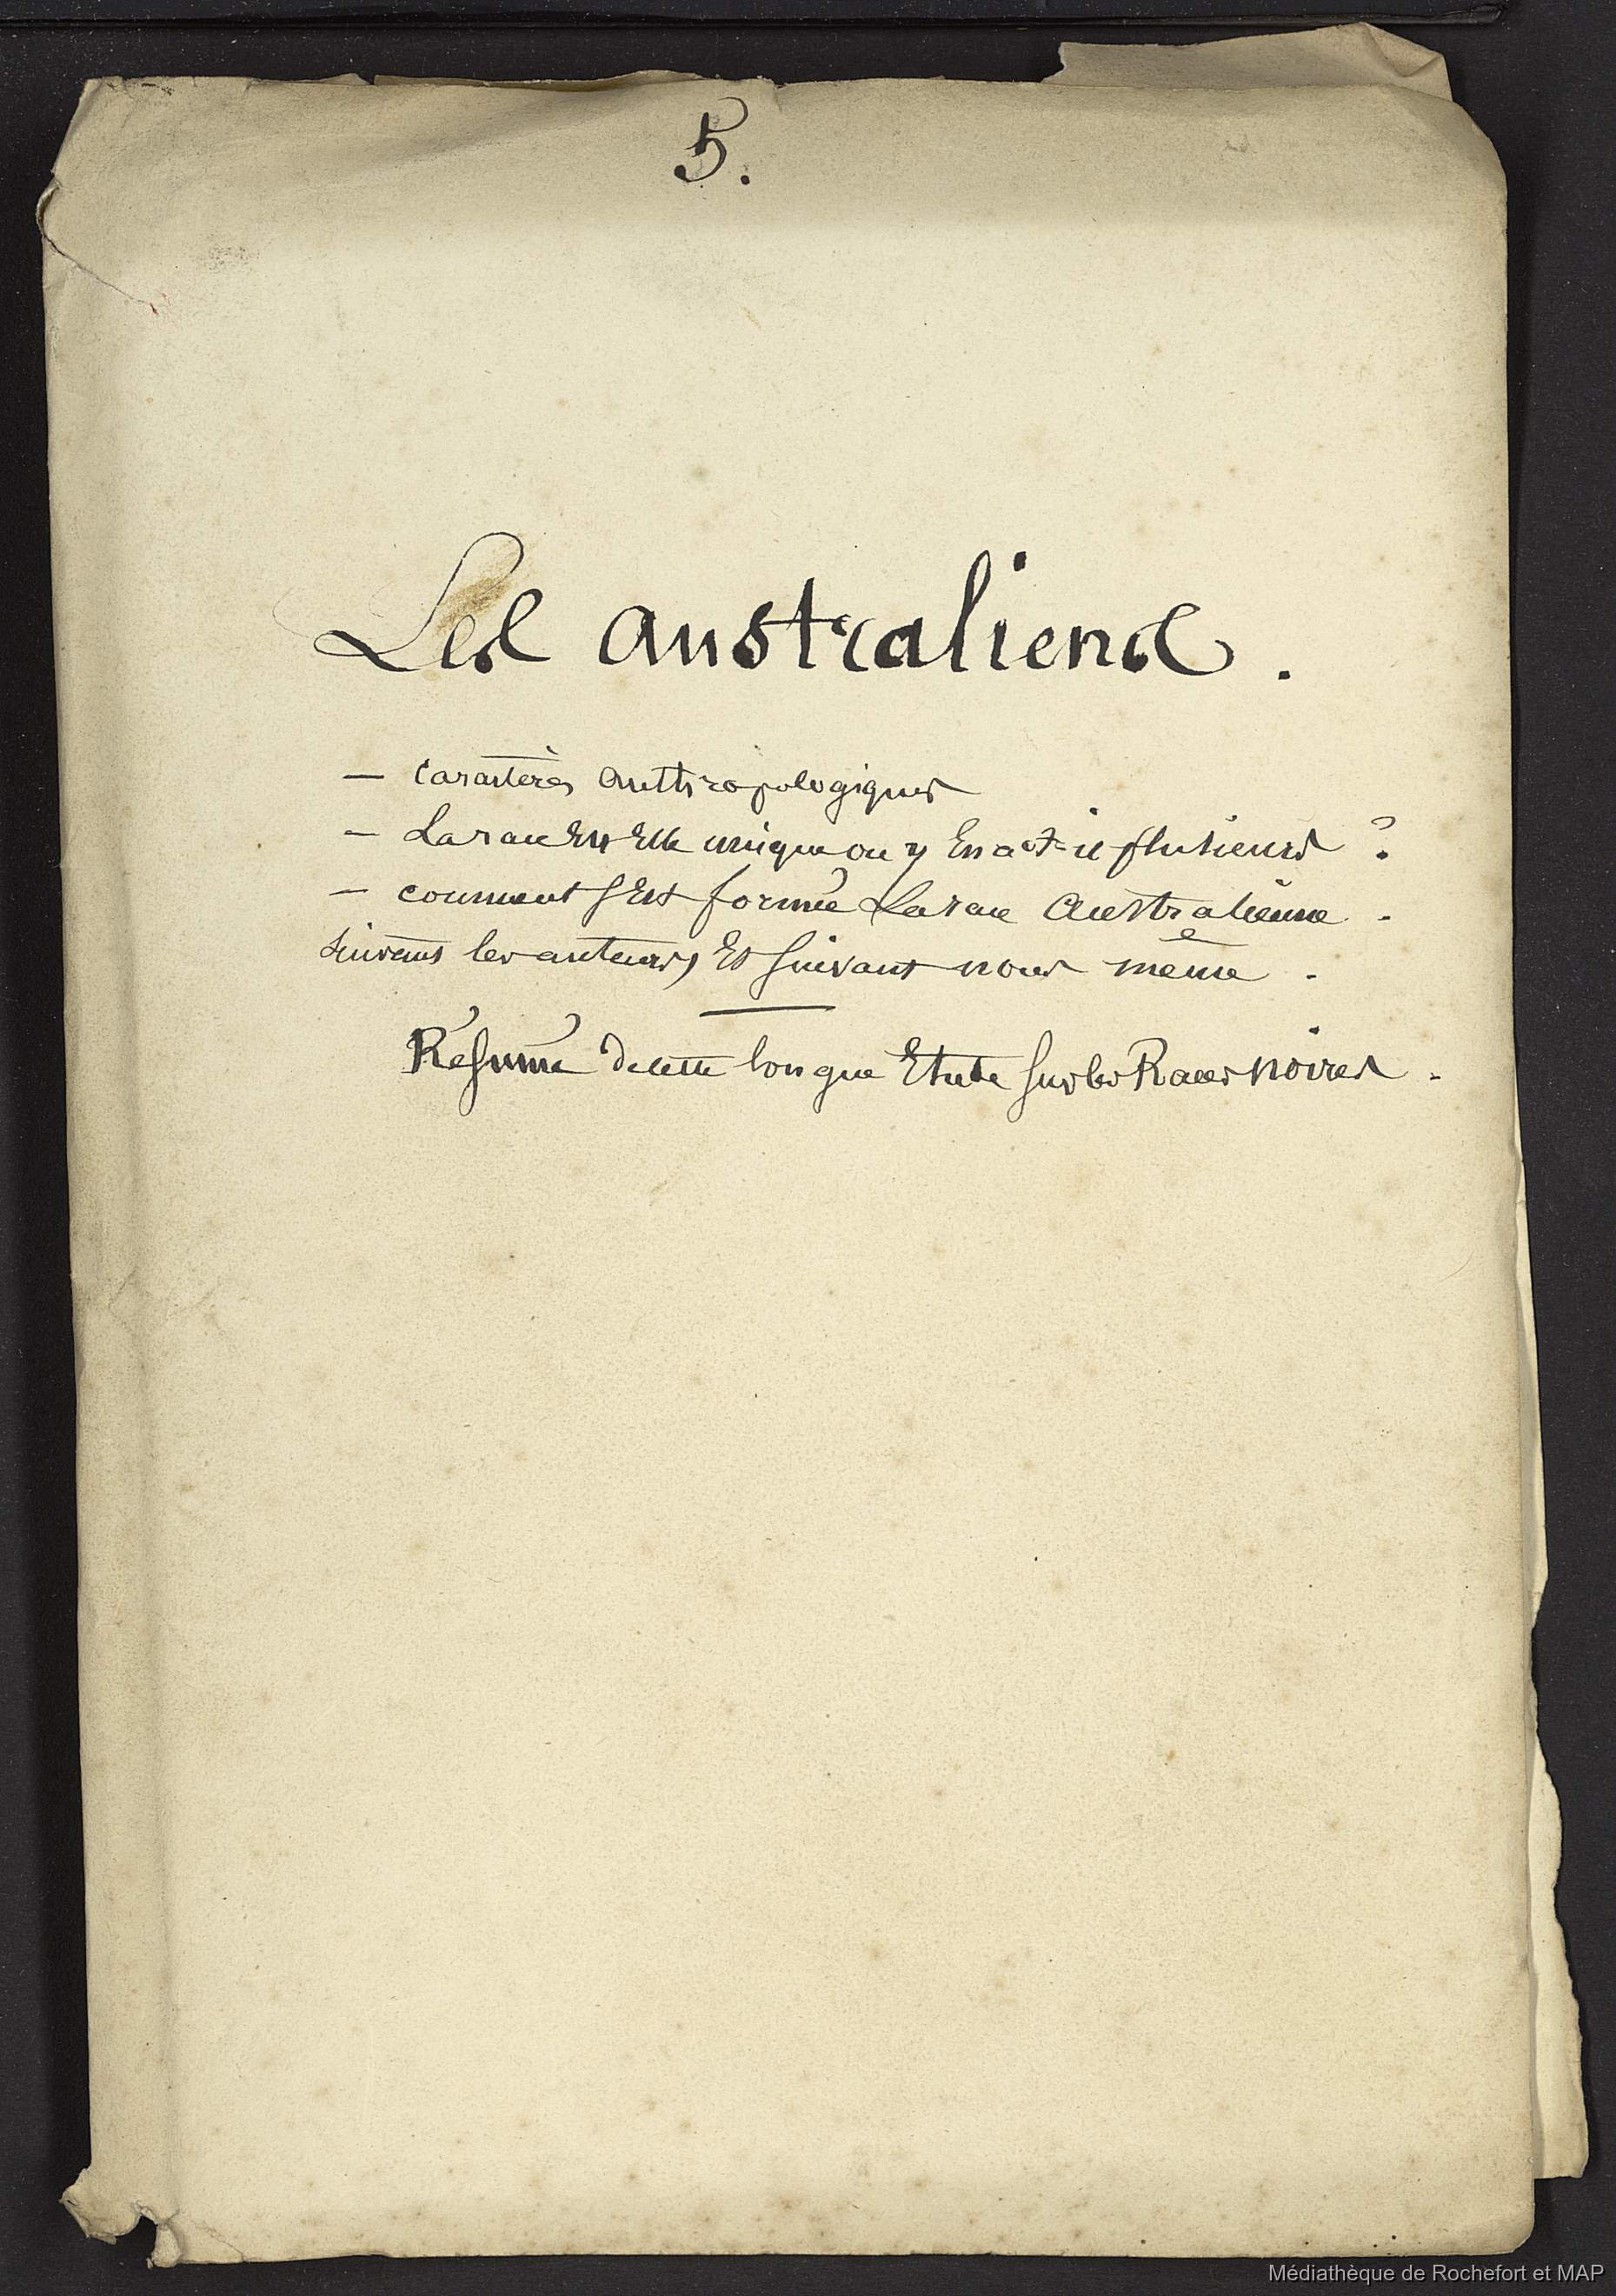 5.
Les australiens.
— Caractères anthropologiques
— La race Est Elle unique ou y En a-t-il plusieurs ?
— comment s'Est formée La race Australienne.
suivant les auteurs, Et suivant nous même.
Résumé de cette longue Etude sur les Races noires.
Médiathèque de Rochefort et MAP